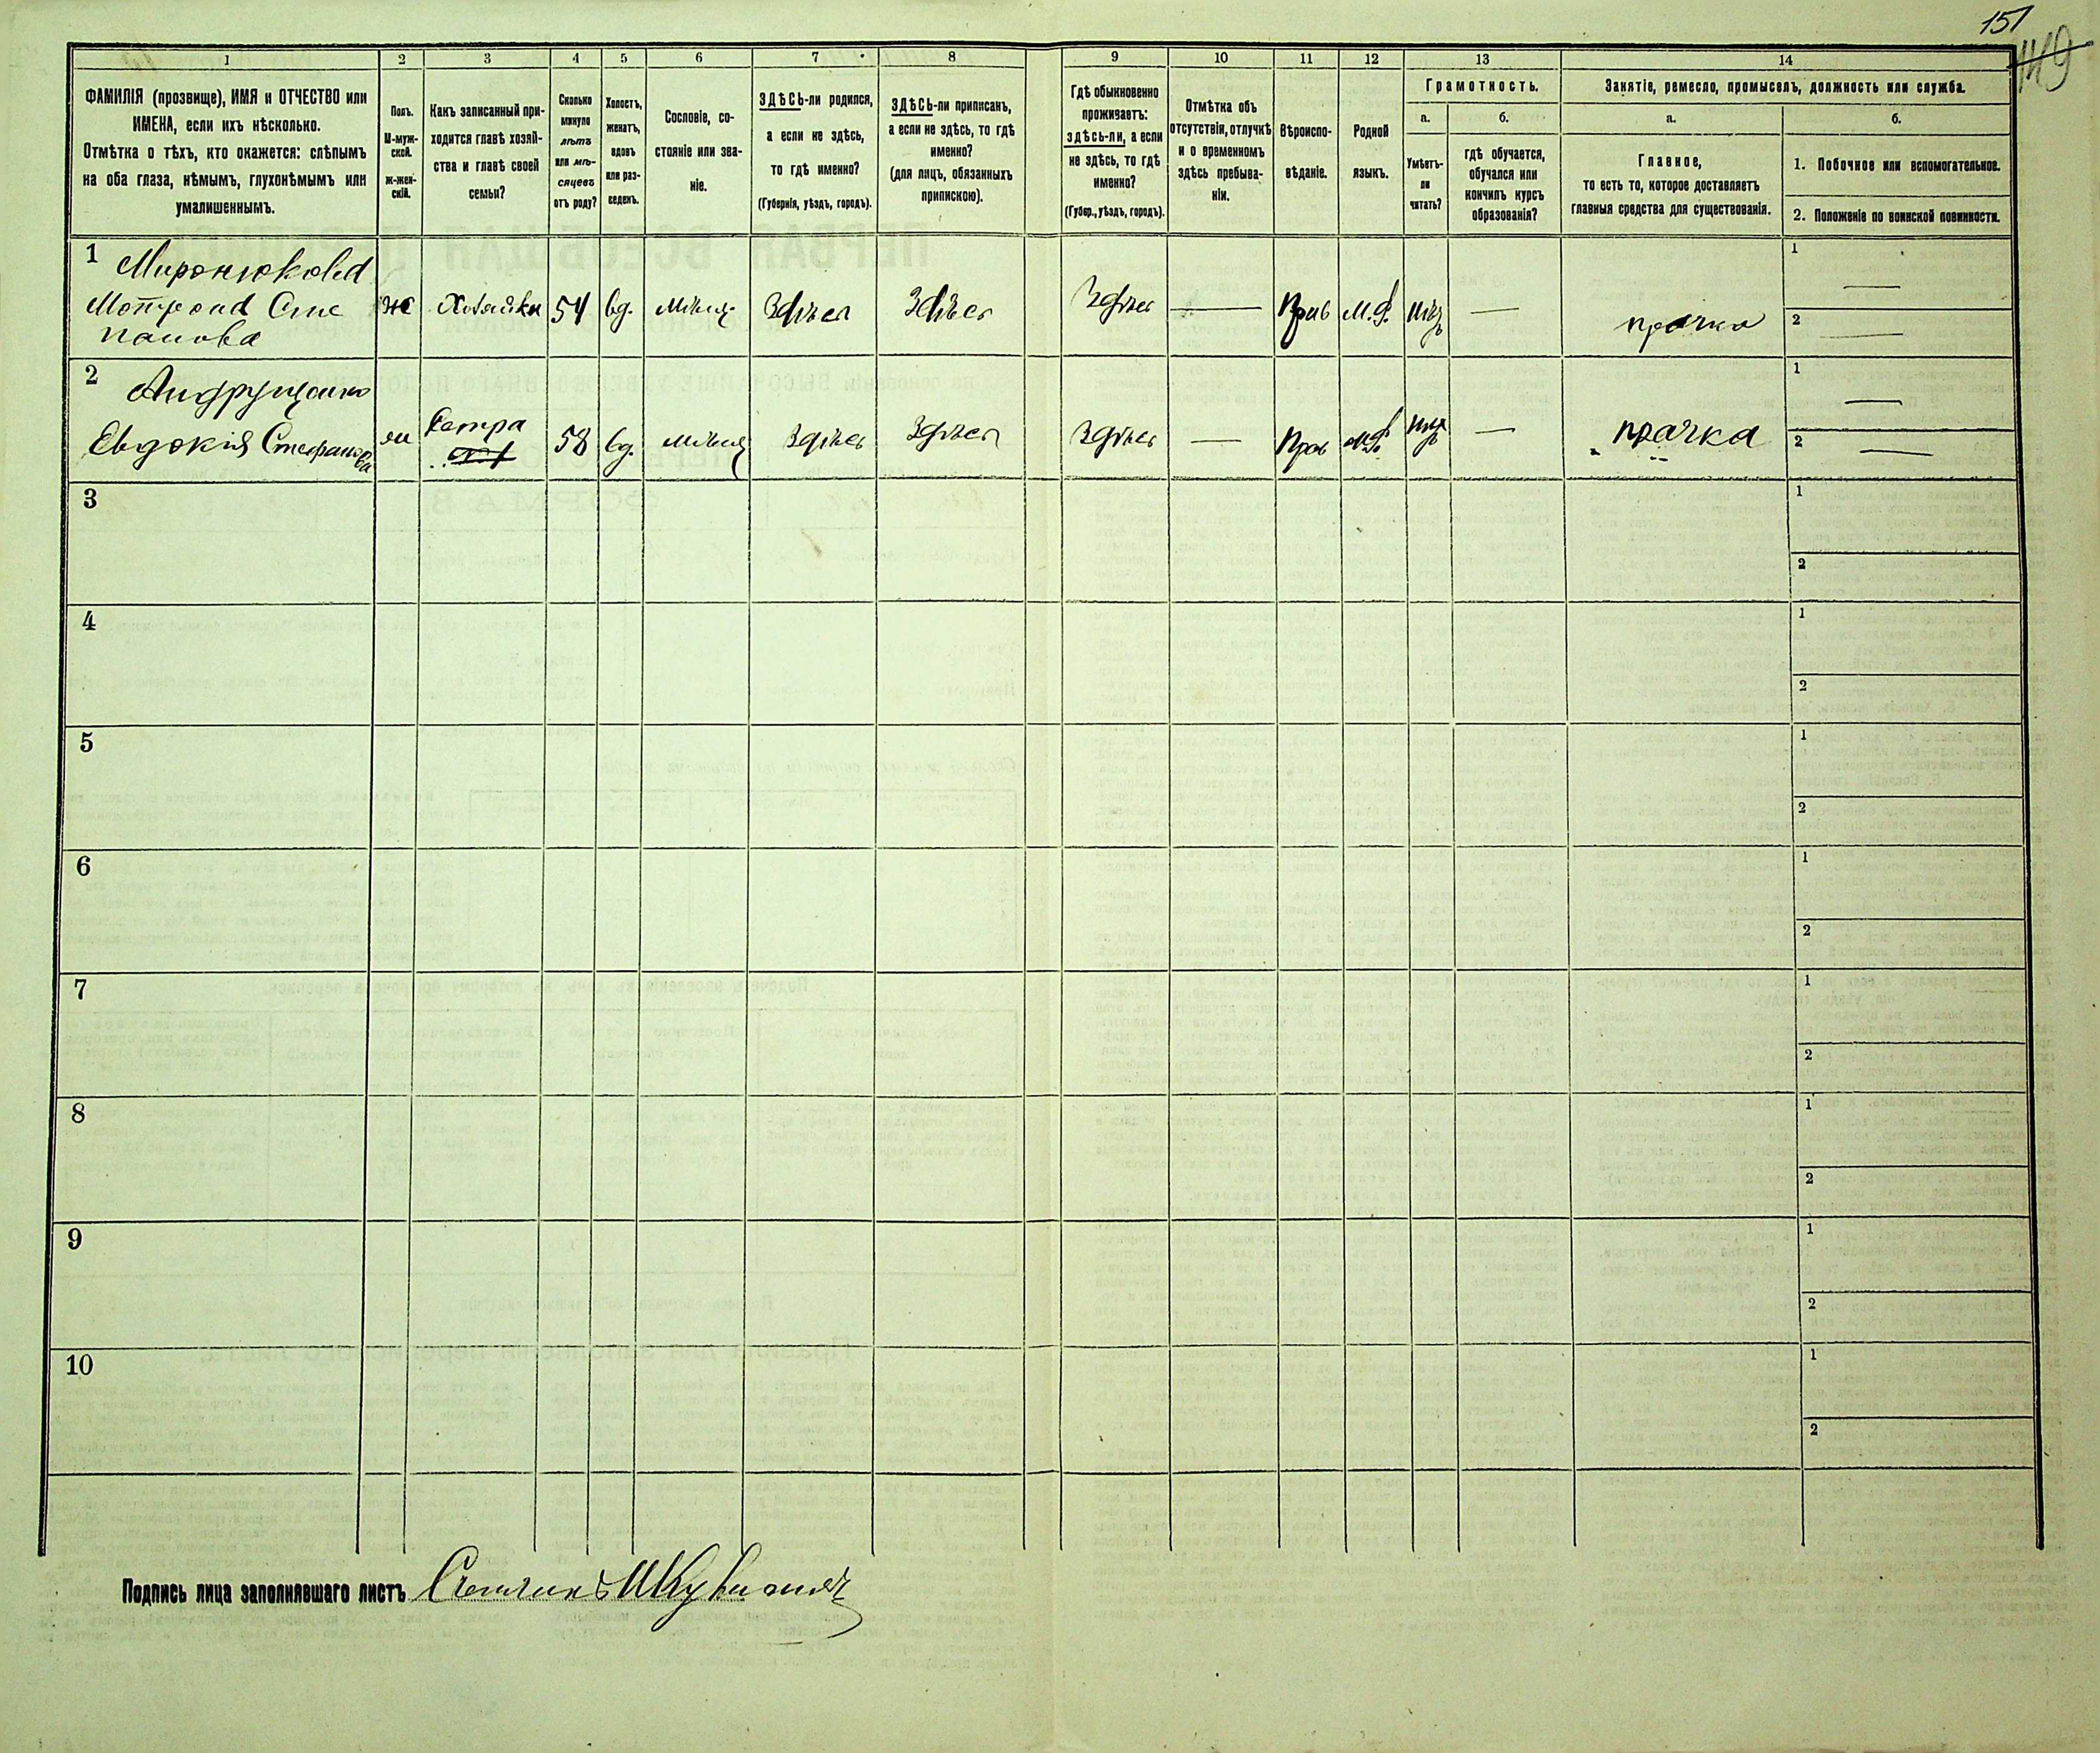 151
149
1
2
3
4
5
6
7
8
9
10
11
12
13
14
ФАМИЛІЯ (прозвище), ИМЯ и ОТЧЕСТВО или
ИМЕНА, если ихъ нѣсколько.
Отмѣтка о тѣхъ, кто окажется: слѣпымъ
на оба глаза, нѣмымъ, глухонѣмымъ или
умалишеннымъ.
Полъ.
М-муж-
ской.
ж-жен-
скій.
Какъ записанный при-
ходится главѣ хозяй-
ства и главѣ своей
семьи?
Сколько
минуло
лѣтъ
или мѣ-
сяцевъ
отъ роду?
Холостъ,
женатъ,
вдовъ
или раз-
веденъ.
Сословіе, со-
стояніе или зва-
ніе.
ЗДѢСЬ-ли родился,
а если не здѣсь,
то гдѣ именно?
(Губернія, уѣздъ, городъ).
ЗДѢСЬ-ли приписанъ,
а если не здѣсь, то гдѣ
именно?
(для лицъ, обязанныхъ
припискою).
Гдѣ обыкновенно
проживаетъ:
здѣсь-ли, а если
не здѣсь, то гдѣ
именно?
(Губер., уѣздъ, городъ).
Отмѣтка объ
отсутствіи, отлучкѣ
и о временномъ
здѣсь пребыва-
ніи.
Вѣроиспо-
вѣданіе.
Родной
языкъ.
Грамотность.
а.
Умѣетъ-
ли
читать?
б.
гдѣ обучается,
обучался или
кончилъ курсъ
образованія?
Занятіе, ремесло, промыселъ, должность или служба.
а.
Главное,
то есть то, которое доставляетъ
главныя средства для существованія.
б.
1. Побочное или вспомогательное.
2. Положеніе по воинской повинности.
1
Миронюкова
Мотрона Сте
панова
ж
Хозяйка
54
вд.
мѣщ.
Здѣсь
Здѣсь
Здѣсь
—
Прав
М.Р.
—
прачка
1 —
2 —
2
Андрущенко
Евдокія Стефанова
Сестра
58
вд.
мѣщ
Здѣсь
Здѣсь
Здѣсь
—
Прав
—
прачка
1 —
2 —
3
1
2
4
1
2
5
1
2
6
1
2
7
1
2
8
1
2
9
1
2
10
1
2
Подпись лица заполнявшаго листъ Счетчикъ